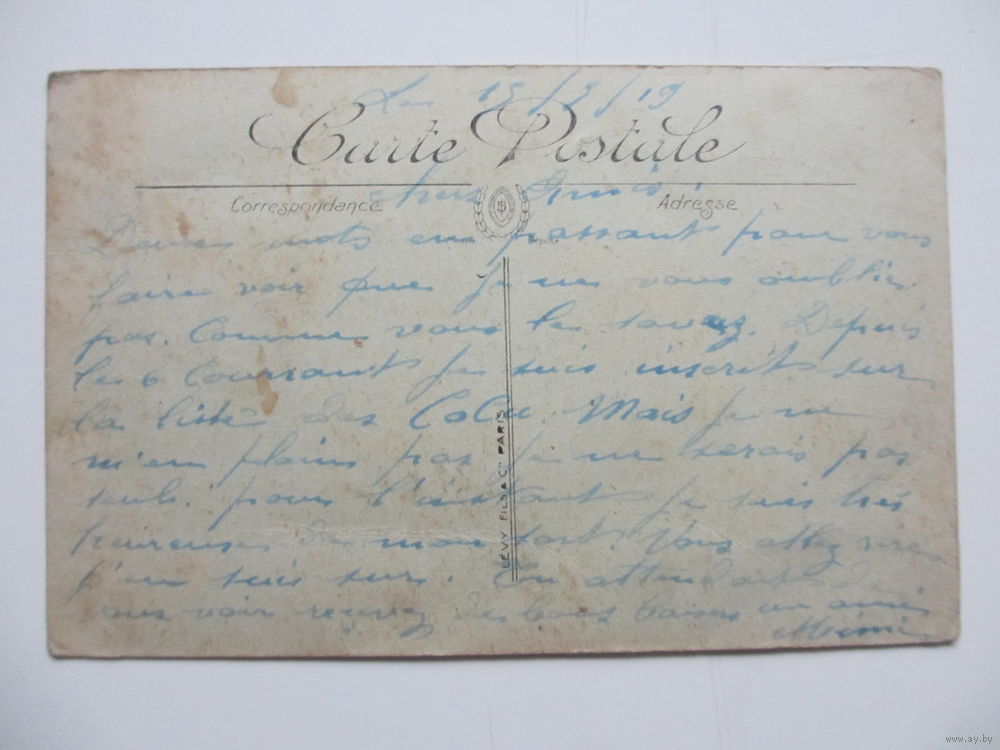 Le 15/2/19
Carte Postale
Chers Amis
Correspondance
Adresse
Deux mots en passant pour vous
faire voir que je ne vous oublie
pas. Comme vous le savez. Depuis
le 6 Courant je suis inscrit sur
la liste des CoCu. Mais je ne
m'en plains pas je ne serais pas
seul. pour l'instant je suis très
heureuse de mon sort. Vous allez rire
j'en suis sure. En attendant de
vous voir recevez de bons baisers un amie
Mimi
LÉVY FILS & Cie PARIS
www.ay.by